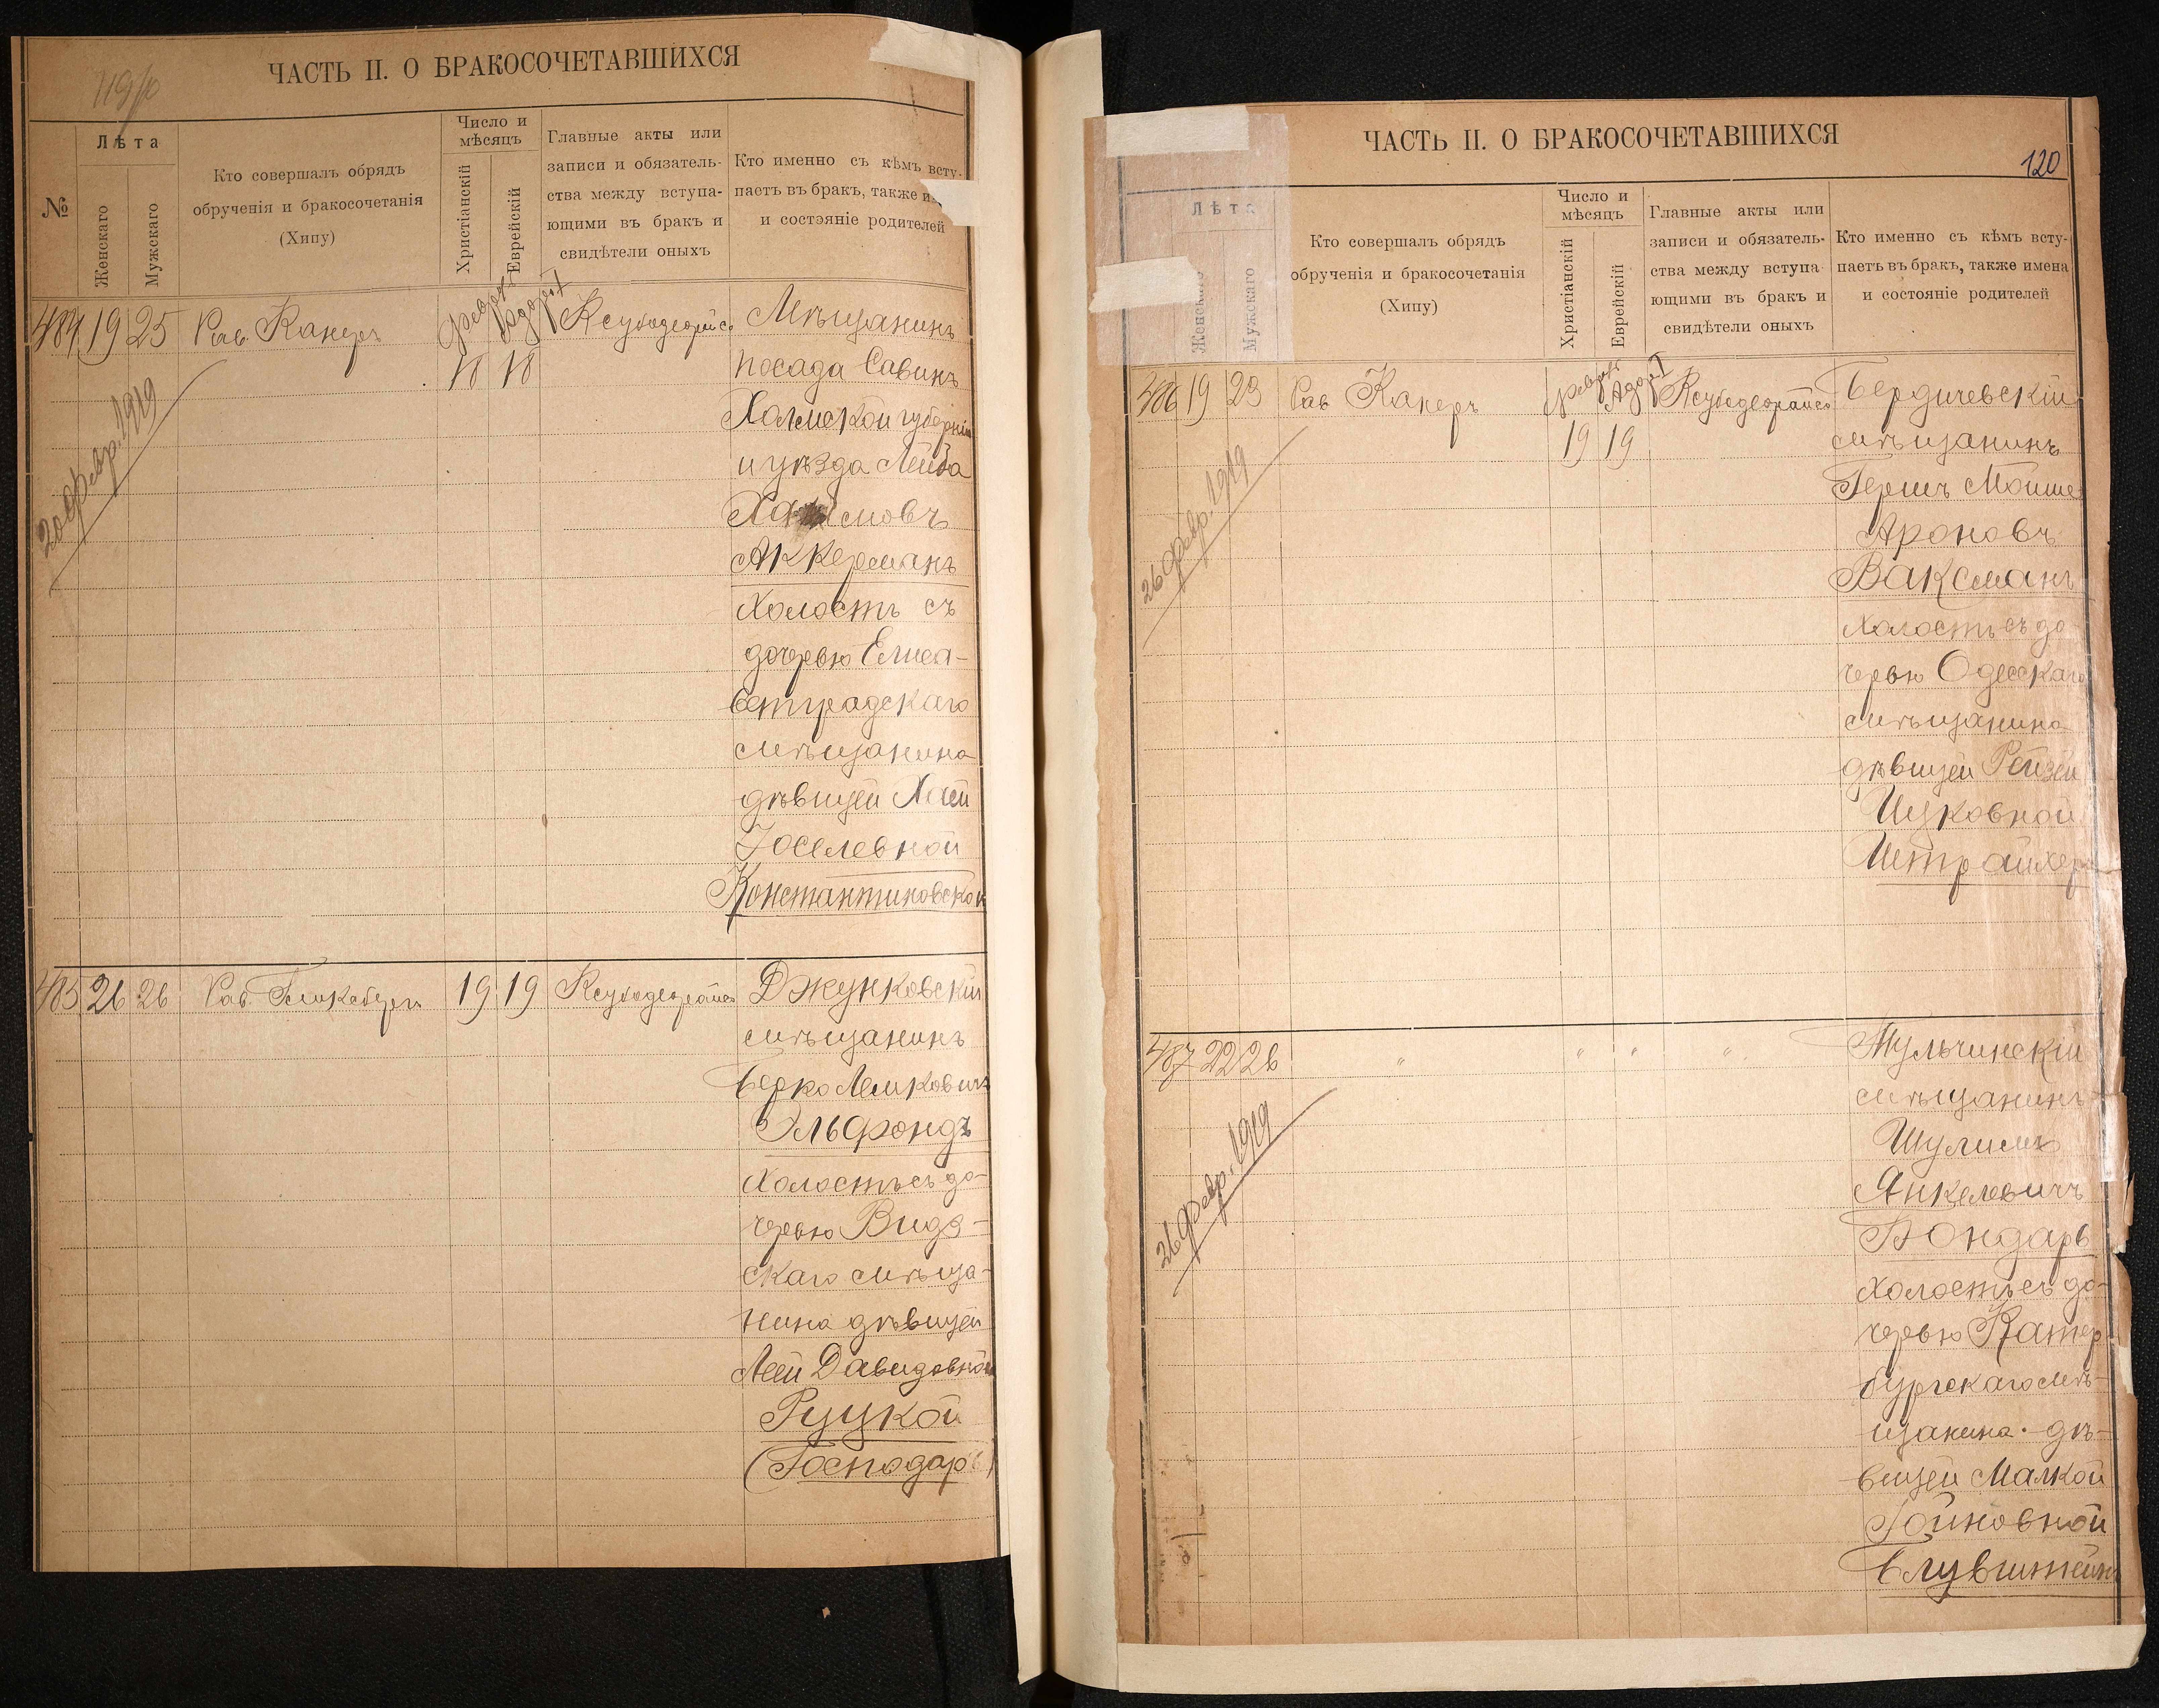 119/о
ЧАСТЬ II. О БРАКОСОЧЕТАВШИХСЯ
№
Лѣта
Женскаго
Мужскаго
Кто совершалъ обрядъ
обрученія и бракосочетанія
(Хипу)
Число и
мѣсяцъ
Христіанскій
Еврейскій
Главные акты или
записи и обязатель-
ства между вступа-
ющими въ бракъ и
свидѣтели оныхъ
Кто именно съ кѣмъ всту-
паетъ въ бракъ, также и
и состояніе родителей
484 19 25 Рав. Канеръ
18 18
20 февр. 1919
Мѣщанинъ
посада Савинъ
Холмской губерніи
и уѣзда Лейба
Хаимовъ
Аккерманъ
холостъ съ
дочерью Елиса-
ветградскаго
мѣщанина
дѣвицей Хаей
Іоселевной
Константиновской
485 26 26 Рав. 19 19
Джунковскій
мѣщанинъ
Берко Лейковичъ
Эльфондъ
холостъ съ до-
черью Видз-
скаго мѣща-
нина дѣвицей
Леей Давидовной
Руцкой
(Господарь)
ЧАСТЬ II. О БРАКОСОЧЕТАВШИХСЯ
120
Лѣта
Женскаго
Мужскаго
Кто совершалъ обрядъ
обрученія и бракосочетанія
(Хипу)
Число и
мѣсяцъ
Христіанскій
Еврейскій
Главные акты или
записи и обязатель-
ства между вступа
ющими въ бракъ и
свидѣтели оныхъ
Кто именно съ кѣмъ всту-
паетъ въ бракъ, также имена
и состояніе родителей
486 19 23 Рав Канеръ
19 19
26 февр. 1919
Бердичевскій
мѣщанинъ
Гершъ Мойше
Ароновъ
Ваксманъ
холостъ съ до-
черью Одесскаго
мѣщанина
дѣвицей Рейзей
Ицковной
Штрайхеръ
487 22 26 " " " "
26 февр. 1919
Тульчинскій
мѣщанинъ
Шулимъ
Янкелевичъ
Бондарь
холостъ съ до-
черью Катер-
бургскаго мѣ-
щанина дѣ-
вицей Малкой
Іойновной
Блувштейнъ